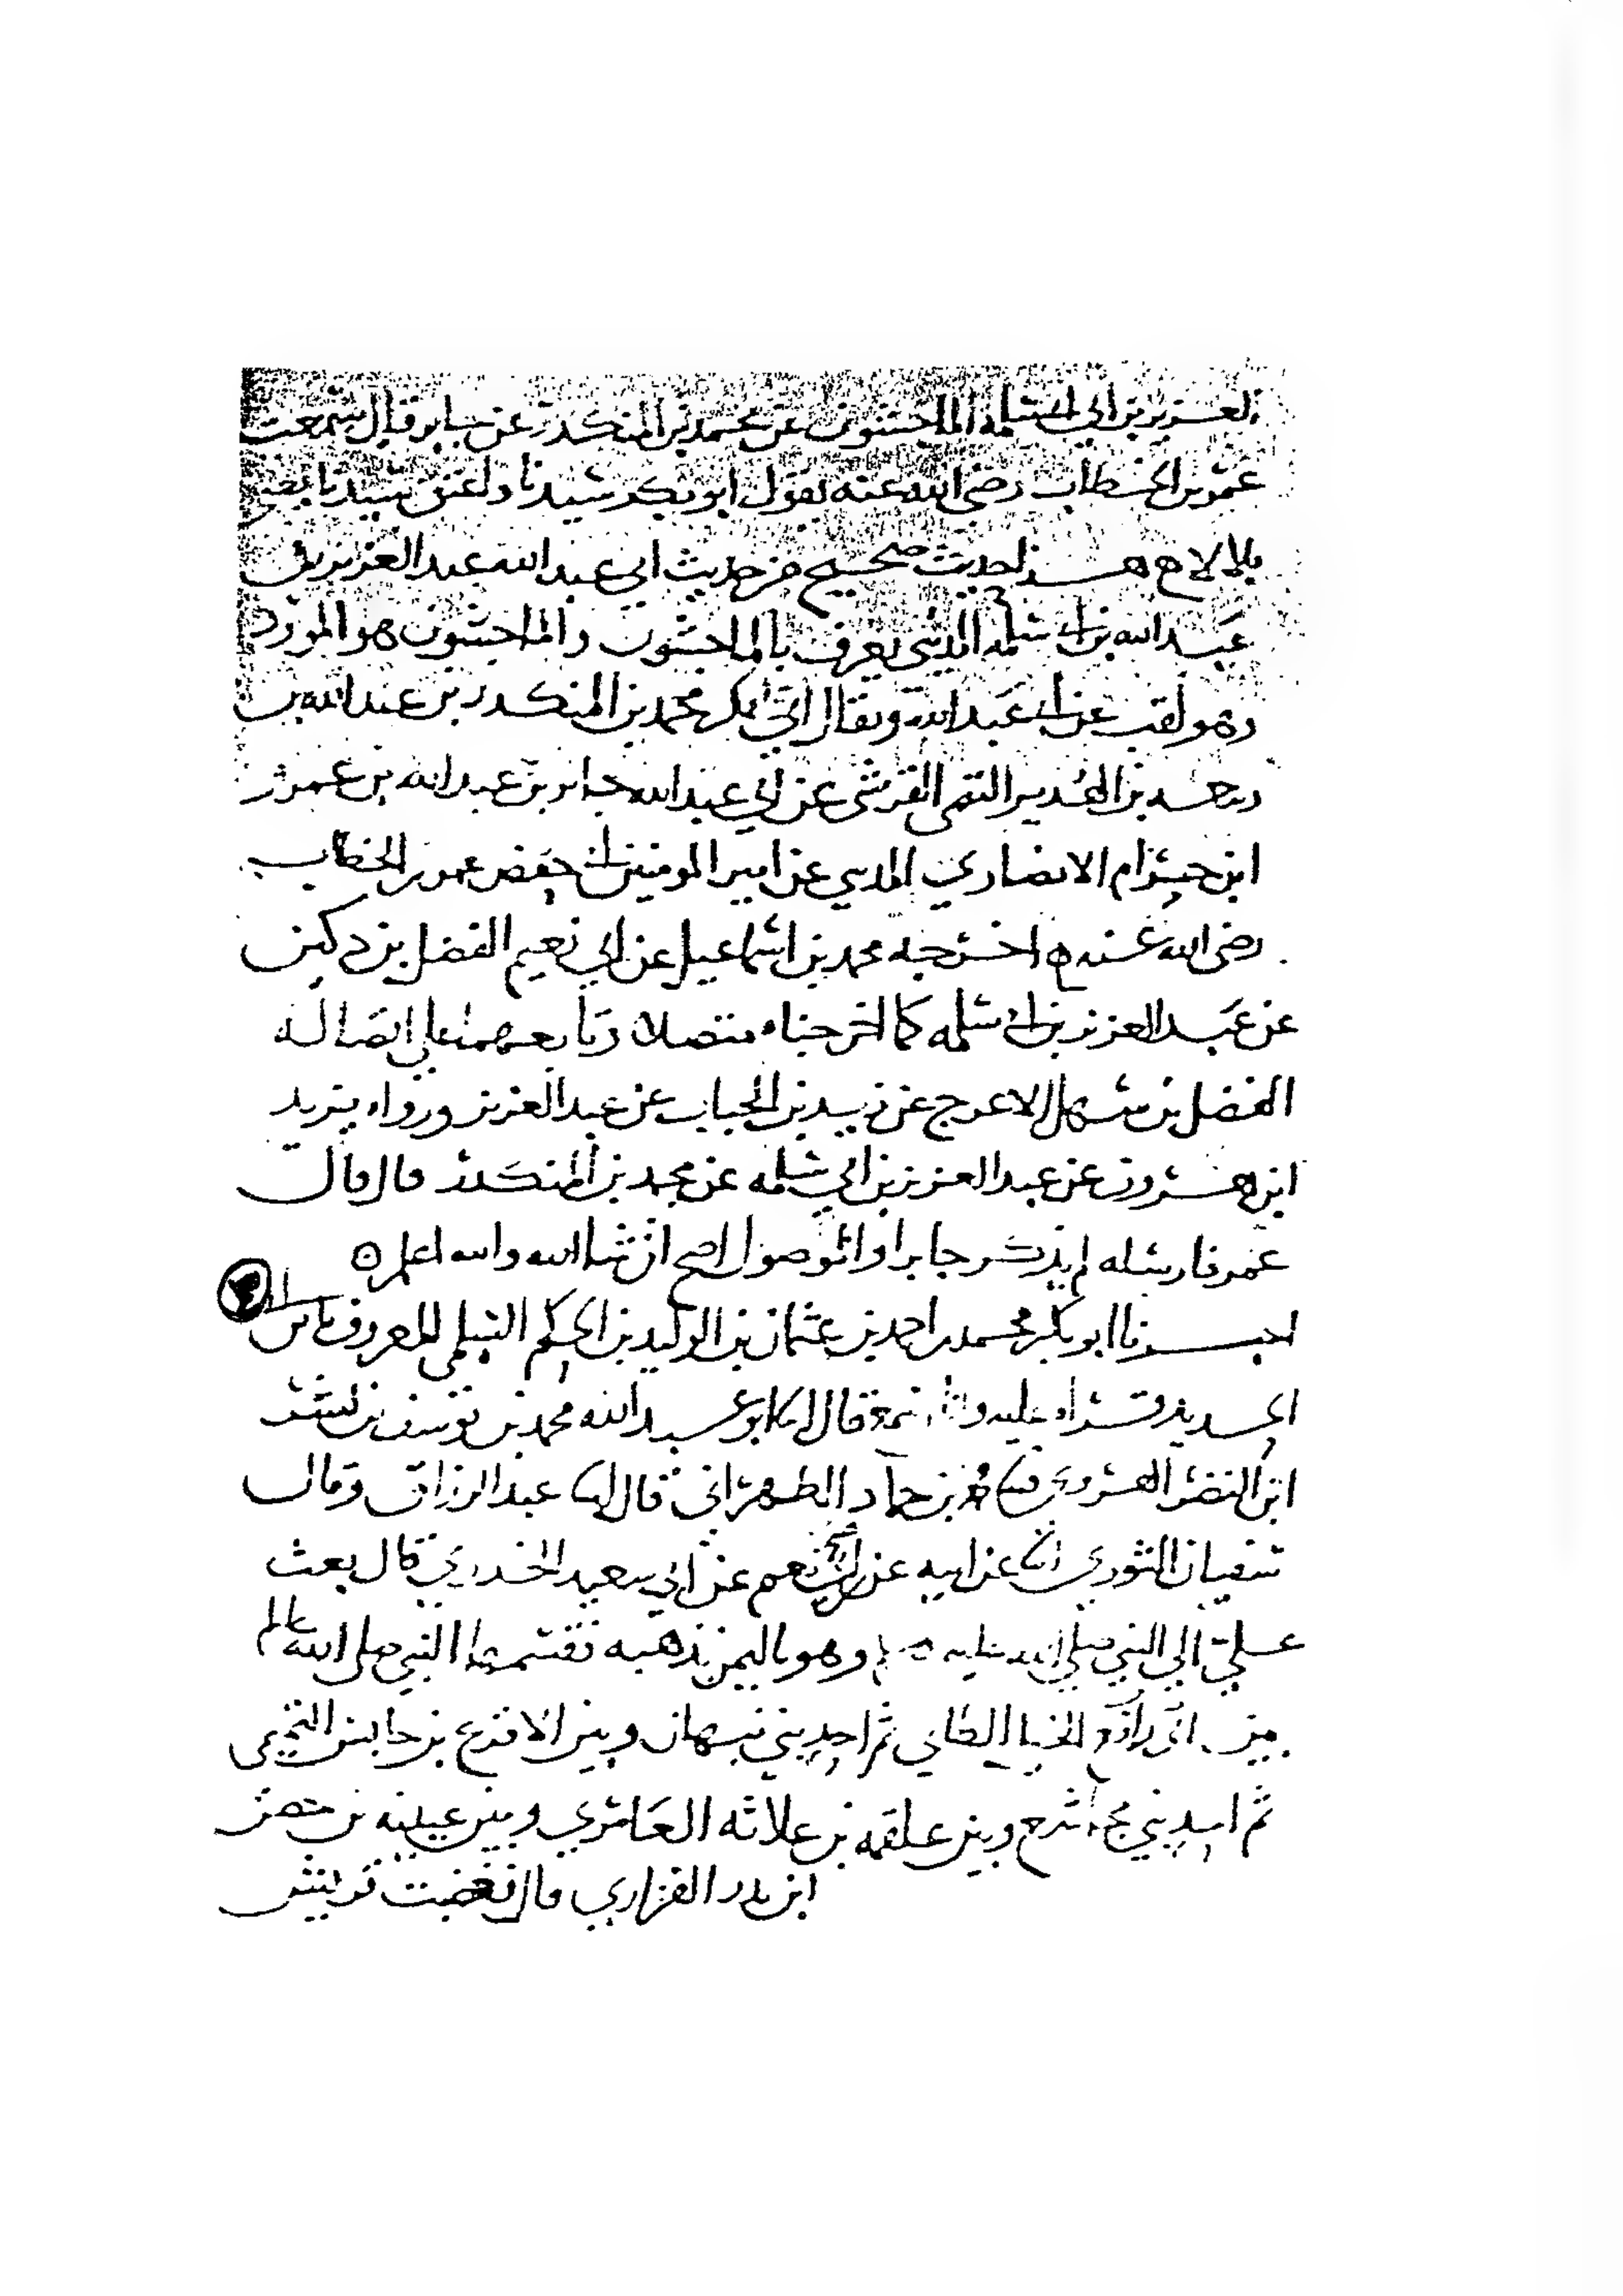 العزيز بن ابي سلمة الماجشون عن محمد بن المنكدر عن جابر قال سمعت
عمر بن الخطاب رضى الله عنه يقول ابو بكر سيدنا واعتق سيدنا يعني
بلالا ه هذا حديث صحيح من حديث ابي عبد الله عبد العزيز بن
عبد الله بن ابي سلمه المديني يعرف بالماجشون والماجشون هو المورد
وهو لقب عن ابي عبد الله ويقال ابي بكر محمد بن المنكدر بن عبد الله بن
ربيعة بن الهدير التيمي القرشي عن ابي عبد الله جابر بن عبد الله بن عمرو
ابن حرام الانصاري المديني عن امير المومنين ابي حفص عمر بن الخطاب
رضى الله عنه ه اخرجه محمد بن اسماعيل عن ابي نعيم الفضل بن دكين
عن عبد العزيز بن ابي سلمه كما اخرجناه متصلا وتابعهما على اتصاله
الفضل بن سهل الاعرج عن زيد بن الحباب عن عبد العزيز ورواه يزيد
ابن هرون عن عبد العزيز بن ابي سلمه عن محمد بن المنكدر قال قال
عمر فارسله لم يذكر جابرا والموصول اصح ان شا الله والله اعلم ه
اخبرنا ابو بكر محمد بن احمد بن عثمان بن الوليد بن الحكم السلمي المعروف بابن
ابي الحديد قراه عليه وانا اسمع قال انا ابو عبد الله محمد بن يوسف بن بشر
ابن النضر الهروي محمد بن حماد الطهراني قال انا عبد الرزاق وقال
سفيان الثوري انا عن ابيه عن ابن ابي نعم عن ابي سعيد الخدري قال بعث
علي الى النبي صلى الله عليه وهو باليمن بذهبه فقسمها النبي صلى الله عليه
بين الخيل الطاي ثم احد بني نبهان وبين الاقرع بن حابس التميمي
ثم احد بني مجاشع وبين علقمه بن علاثه العامري وبين عيينه بن حصن
ابن بدر الفزاري قال فغضبت قريش